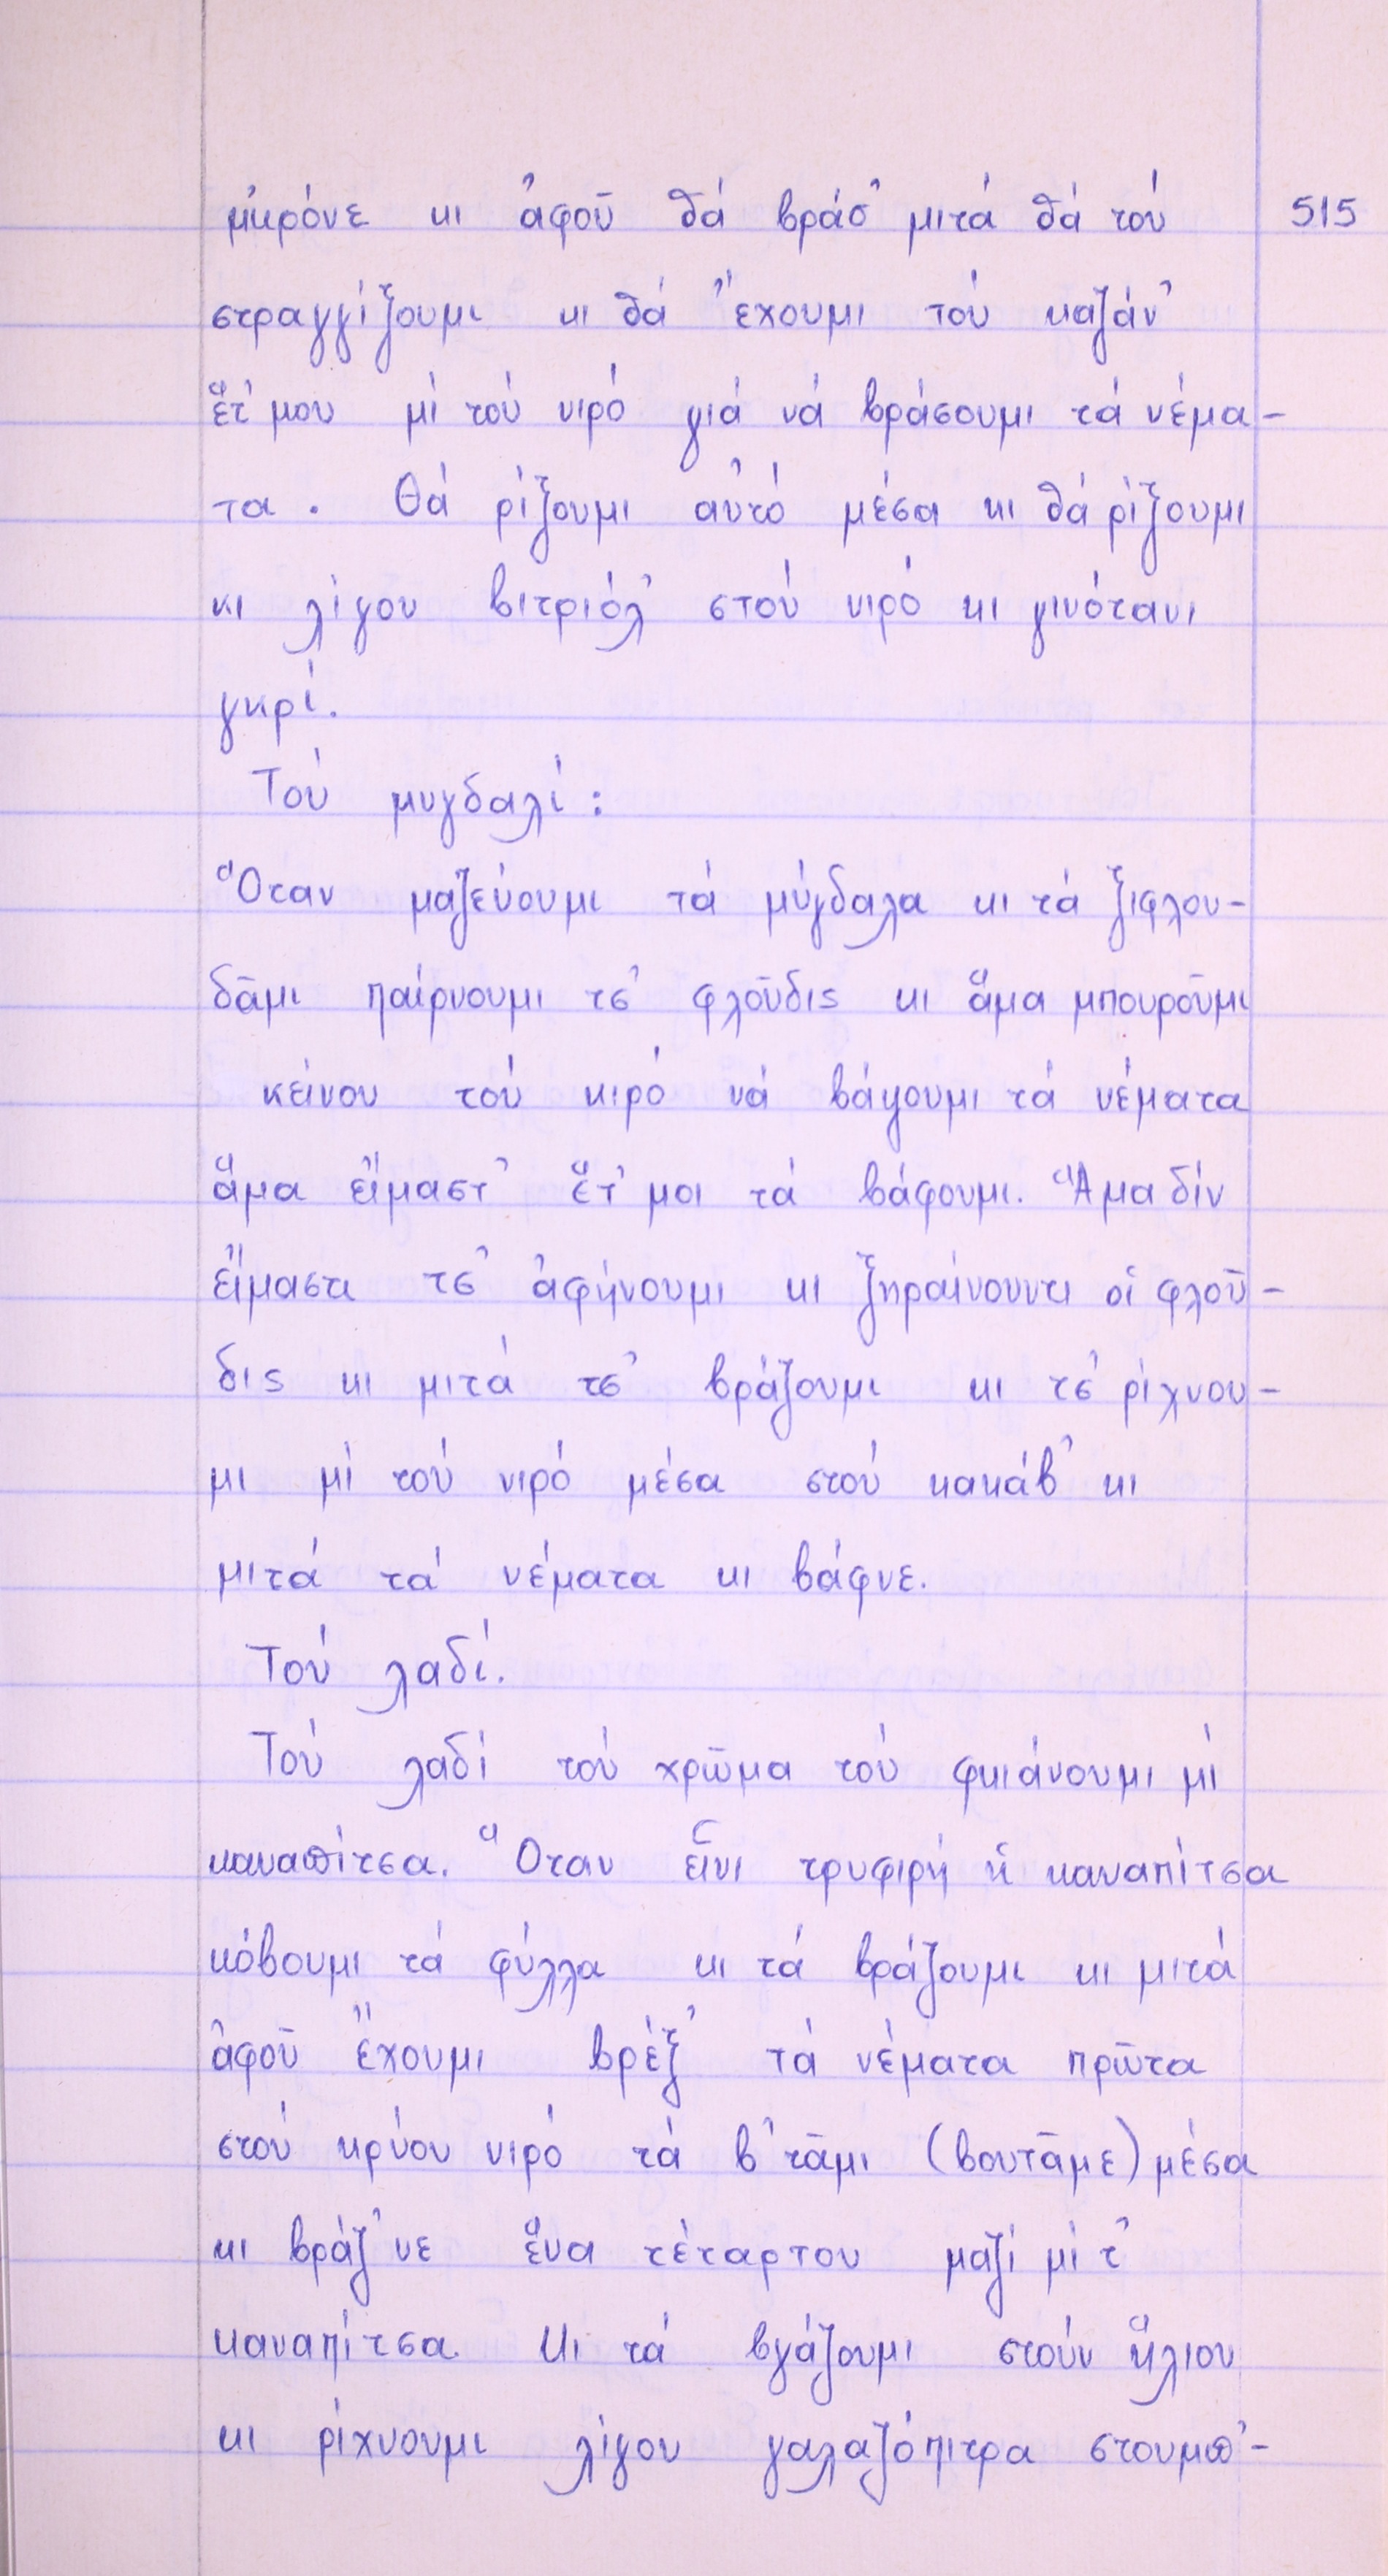 μ'κρόνε κι ἀφοῦ θά βράσ' μιτά θά τού 515
στραγγίζουμι κι θά ἔχουμι τού καζάν'
ἕτ'μου μί τού νιρό γιά νά βράσουμι τά νέμα-
τα. Θά ρίξουμι αὐτό μέσα κι θά ρίξουμι
κι λίγου βιτριόλ' στού νιρό κι γινότανι
γκρί.
Τού μυγδαλί:
Ὅταν μαζεύουμι τά μύγδαλα κι τά ξιφλου-
δᾶμι παίρνουμι τσ' φλοῦδις κι ἅμα μπουροῦμι
κείνου τού κιρό νά βάψουμι τά νέματα
ἅμα εἴμαστ' ἕτ'μοι τά βάφουμι. Ἅμα δίν
εἴμαστι τσ' ἀφήνουμι κι ξηραίνουντι οἱ φλοῦ-
δις κι μιτά τσ' βράζουμι κι τσ' ρίχνου-
μι μί τού νιρό μέσα στού κακάβ' κι
μιτά τά νέματα κι βάφνε.
Τού λαδί.
Τού λαδί τού χρῶμα τού φκιάνουμι μί
καναπίτσα. Ὅταν εἶνι τρυφιρή ἡ καναπίτσα
κόβουμι τά φύλλα κι τά βράζουμι κι μιτά
ἀφοῦ ἔχουμι βρέξ' τά νέματα πρῶτα
στού κρύου νιρό τά β'τᾶμι (βουτᾶμε) μέσα
κι βράζ'νε ἕνα τέταρτου μαζί μί τ'
καναπίτσα. Κι τά βγάζουμι στούν ἥλιου
κι ρίχνουμι λίγου γαλαζόπιτρα στουμπ'-